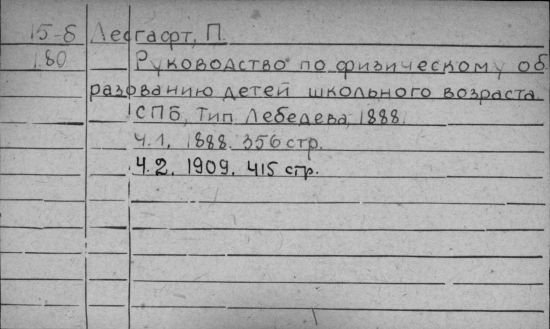 15-8 Лесгафт, П.
180 Руководство по физическому об
разованию детей школьного возраста.
СПБ, Тип. Лебедева, 1888.
Ч.1. 1888. 356 стр.
Ч.2. 1909. 415 стр.